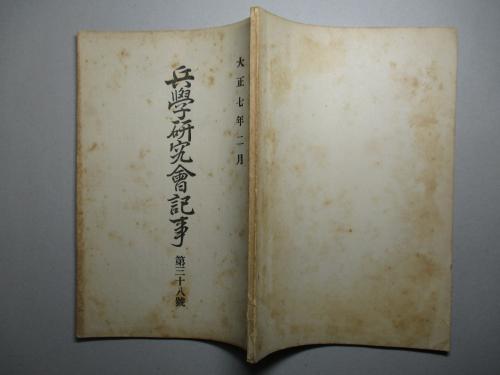 大正七年二月
兵學硏究會記事
第三十八號